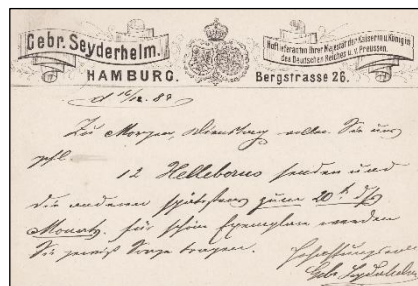 Gebr. Seyderhelm.
Hoflieferanten Ihrer Majestät der Kaiserin u. Königin
des Deutschen Reiches u. v. Preussen.
HAMBURG.
Bergstrasse 26.
Zu Morgen, Dienstag wollen Sie uns
gefl.
12 Helleborus senden und
die anderen spätestens zum 20ts ds
Monats. für schön Exemplare werden
Sie gewiß Sorge tragen.
Hochachtungsvoll
Gebr. Seyderhelm